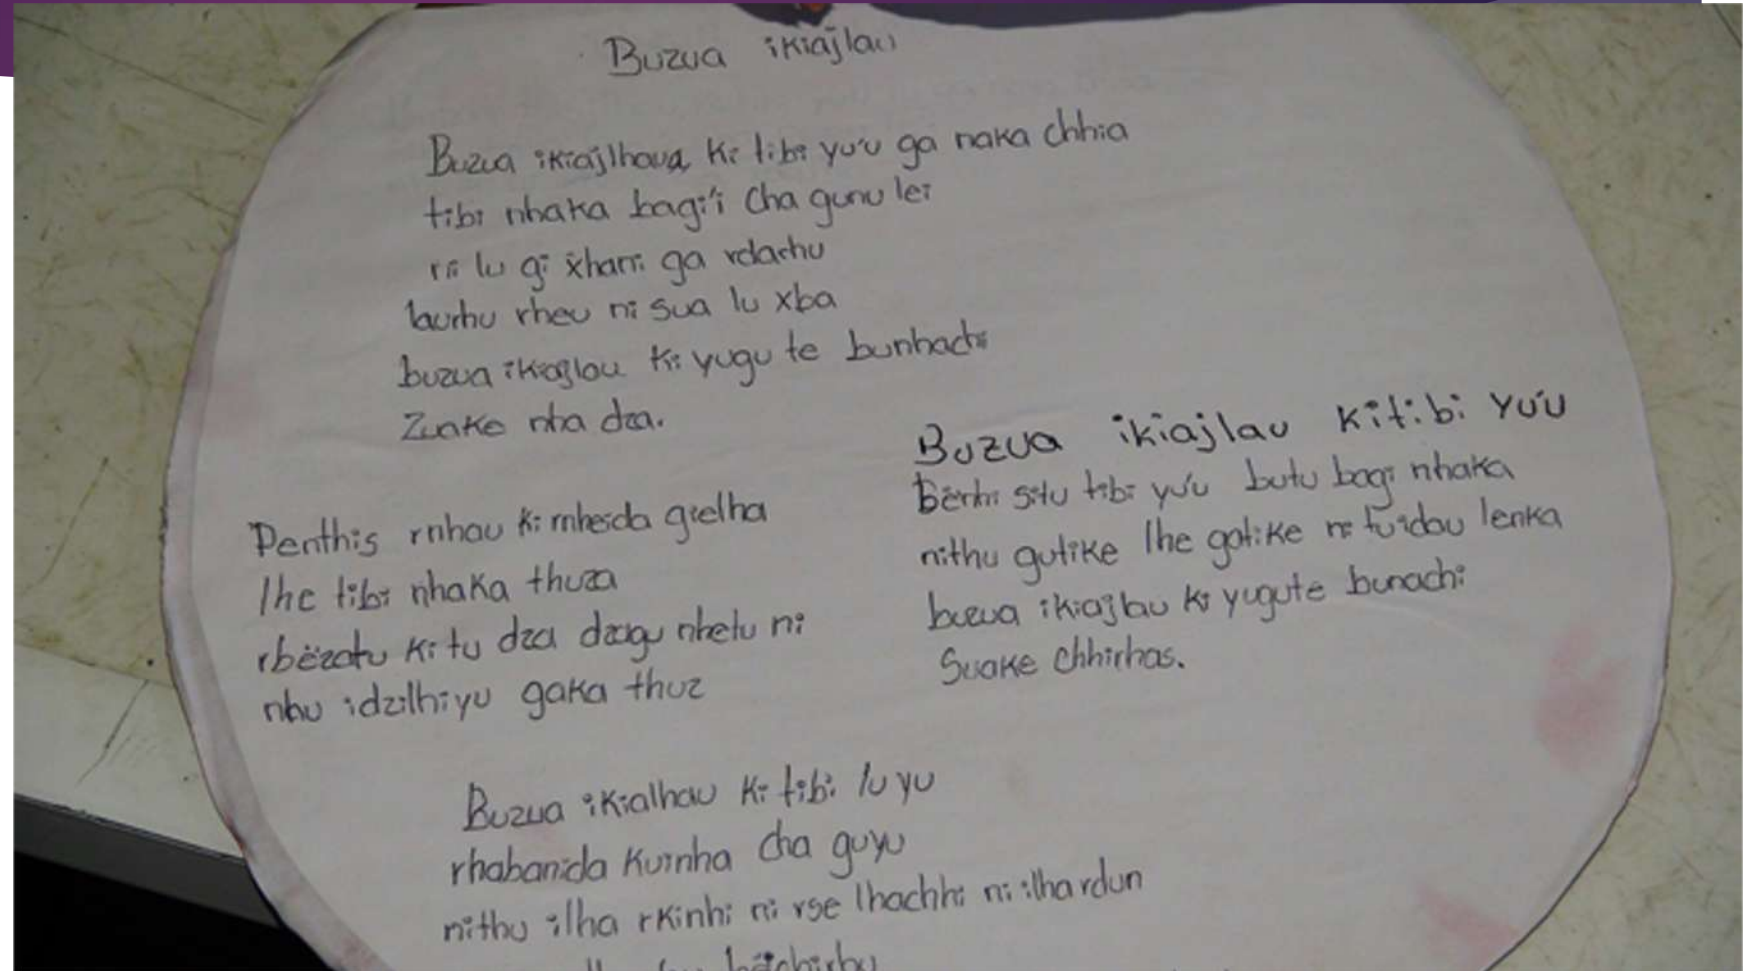 Buzua ikiajlau
Buzua ikiajlhaua ki tibi yu'u ga naka chhia
tibi nhaka bagi'i cha gunu lei
ni lu gi xhani ga rdachu
laurhu rheu ni sua lu xba
buzua ikiajlau ki yugu te bunhachi
Zuake nha dza.
Penthis rnhau ki rnheida gielha
lhe tibi nhaka thuza
rbëzatu ki tu dza dzagu nhetu ni
nhu idzilhiyu gaka thuz
Buzua ikiajlau kitibi yu'u
bërhi situ tibi yu'u butu bagi nhaka
nithu gutike lhe gatike ni tuidau lenka
buzua ikiajlau ki yugute bunachi
Suake chhirhas.
Buzua ikialhau ki tibi lu yu
rhabanida kuinha cha guyu
nithu ilha rkinhi ni rse lhachhi ni ilha rdun